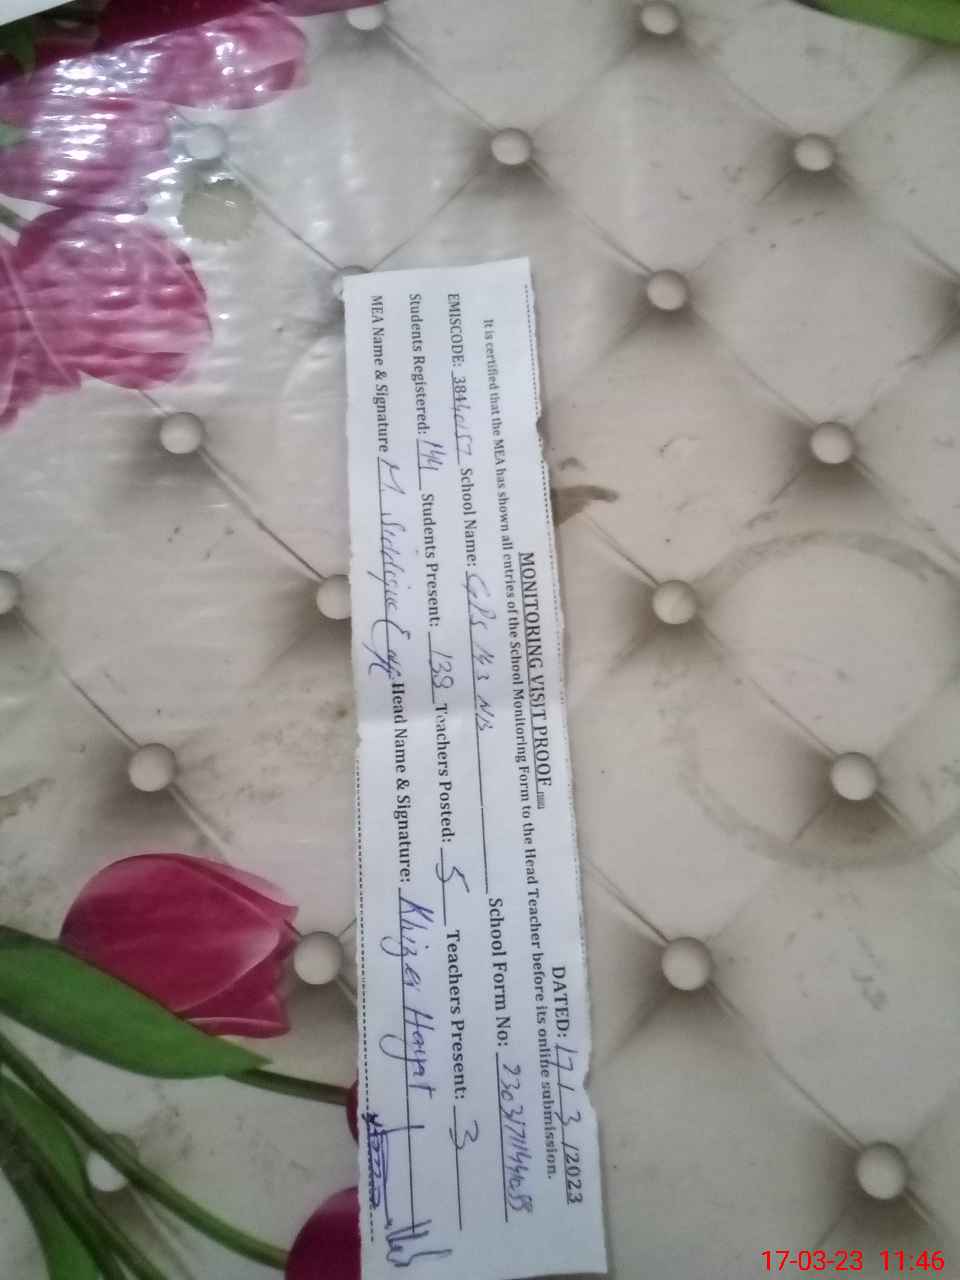 MONITORING VISIT PROOF
DATED: 17/3/2023
It is certified that the MEA has shown all entries of the School Monitoring Form to the Head Teacher before its online submission.
EMISCODE: 38440157 School Name: GPS 143 NB School Form No:
Students Registered: 144 Students Present: 139 Teachers Posted: 5 Teachers Present: 3
MEA Name & Signature M. Siddique Head Name & Signature: Khizer Hayat
17-03-23 11:46